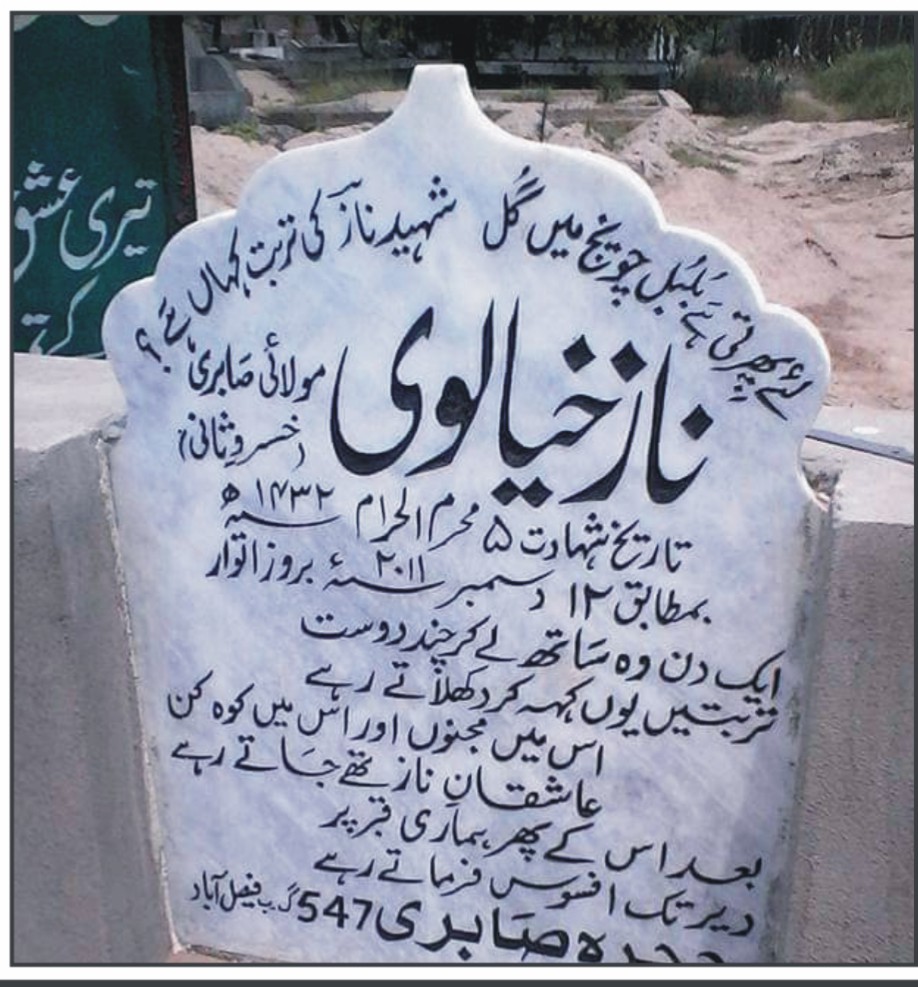 لئے پھرتی ہے بُلبُل چونچ میں گُل
شہیدِ ناز کی تربت کہاں ہے ؟
ناز خیالوی
مولائی صابری
(خسروِ ثانی)
تاریخ شہادت ۵ محرم الحرام ۱۴۳۲ھ
بمطابق ۱۲ دسمبر ۲۰۱۱ء بروز اتوار
ایک دن وہ ساتھ لے کر چند دوست
تربتیں یوں کہہ کر دکھلاتے رہے
اس میں مجنوں اور اس میں کوہ کن
عاشقانِ ناز تھے جاتے رہے
بعد اس کے پھر ہماری قبر پر
دیر تک افسوس فرماتے رہے
صابری 547 گ ب فیصل آباد
تیری عشق
کرتے